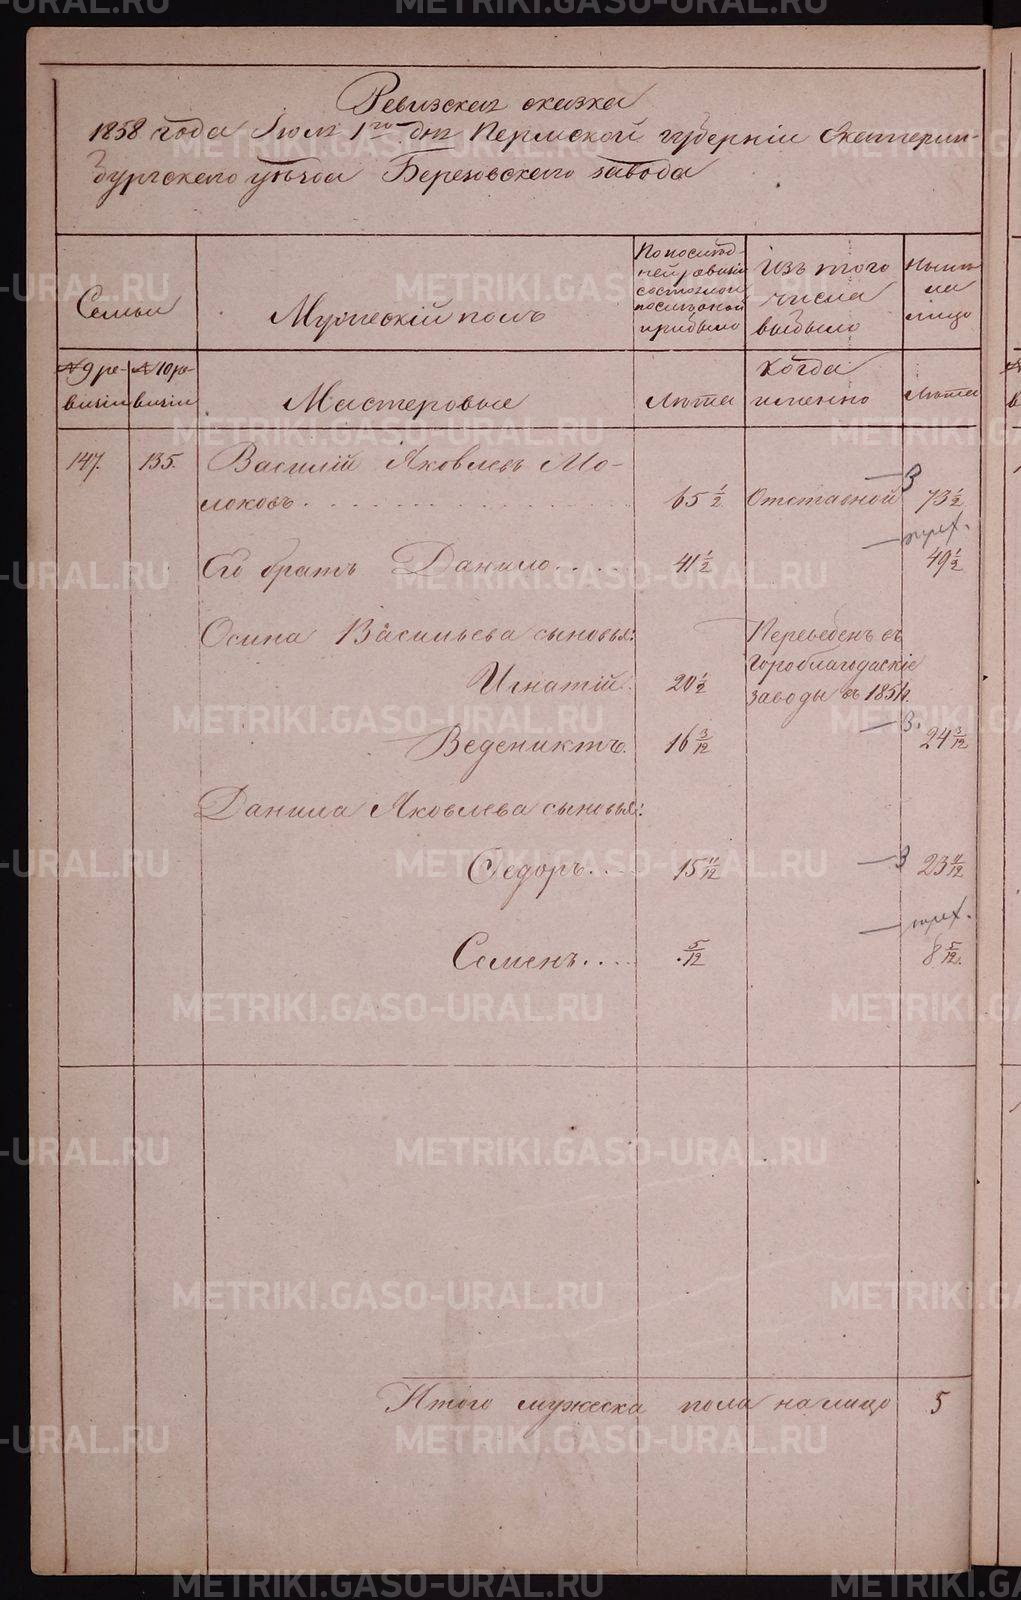 Ревизская сказка
1858 года Июля 1го дня Пермской губерніи Екатерин-
бургского уѣзда Березовского завода
Семьи
Мужескій полъ
По послѣд-
ней ревизіи
состояло и
послѣ оной
прибыло
Изъ того
числа
выбыло
Нынѣ
на
лицо
№ 9 ре-
визіи
№ 10 ре-
визіи
Мастеровые
Лѣта
когда
именно
Лѣта
147. 135. Василій Яковлевъ Мо-
локовъ 65 1/2 Отставной 3 73 1/2
Его братъ Данило 41 1/2 49 1/2
Осипа Васильева сыновья:
Игнатій 20 1/2
Переведенъ въ
Гороблагодаскіе
заводы въ 1854 г.
Веденихтъ 16 3/12 3. 24 3/12
Данила Яковлева сыновья:
Федоръ 15 11/12 3 23 11/12
Семенъ 5/12 8 5/12
Итого мужеска пола на лицо 5
METRIKI.GASO-URAL.RU